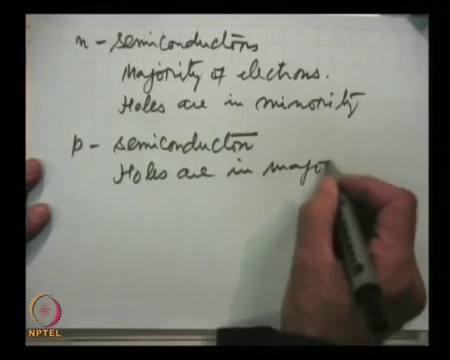 n - semiconductors
Majority of electrons.
Holes are in minority
p - semiconductor
Holes are in majo
NPTEL